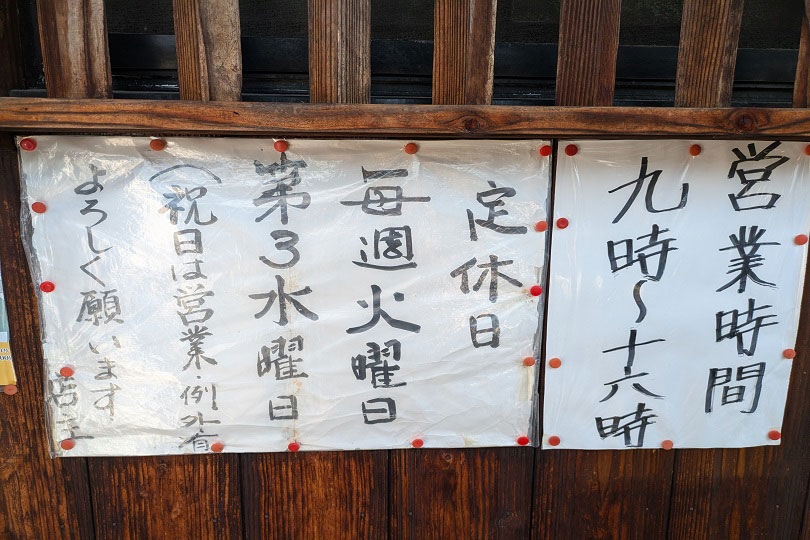 営業時間
九時〜十六時
定休日
毎週火曜日
第3水曜日
（祝日は営業・例外有
よろしく願います
店主